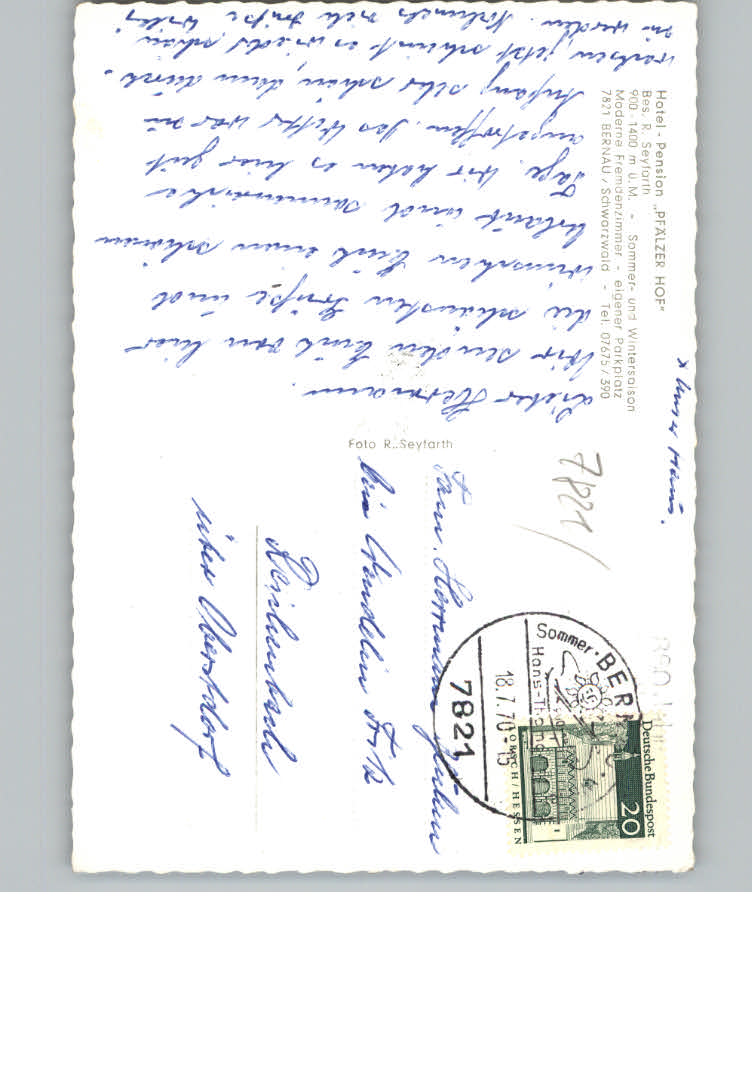 Hotel - Pension „PFÄLZER HOF"
Bes. R. Seyfarth
900 - 1400 m ü. M. - Sommer- und Wintersaison
Moderne Fremdenzimmer - eigener Parkplatz
7821 BERNAU / Schwarzwald - Tel. 07675 / 390
x Unser Haus.
Lieber Hermann.
Wir senden Euch von hier
die schönsten Grüße und
wünschen Euch einen schönen
Urlaub und sonnige
Tage. Wir haben es hier gut
angetroffen. Das Wetter war zu
Anfang sehr schön, dann
jetzt scheint es wieder schön
zu werden. Nochmals viele Grüße
Foto R. Seyfarth
7821
Fam. Hermann
bei Wendelin
Reichenbach
über Oberstdorf
Deutsche Bundespost
20
LORSCH / HESSEN
Sommer-
BERN
Hans-Thoma
18.7.70-15
7821